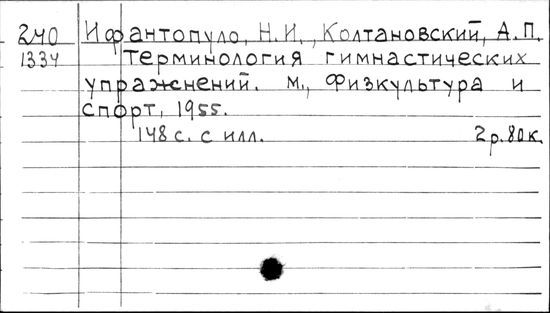 240 Ифантопуло, Н.И., Колтановский, А.П.
1334 Терминология гимнастических
упражнений. М., Физкультура и
спорт, 1955.
148 с. с илл. 2р. 80к.